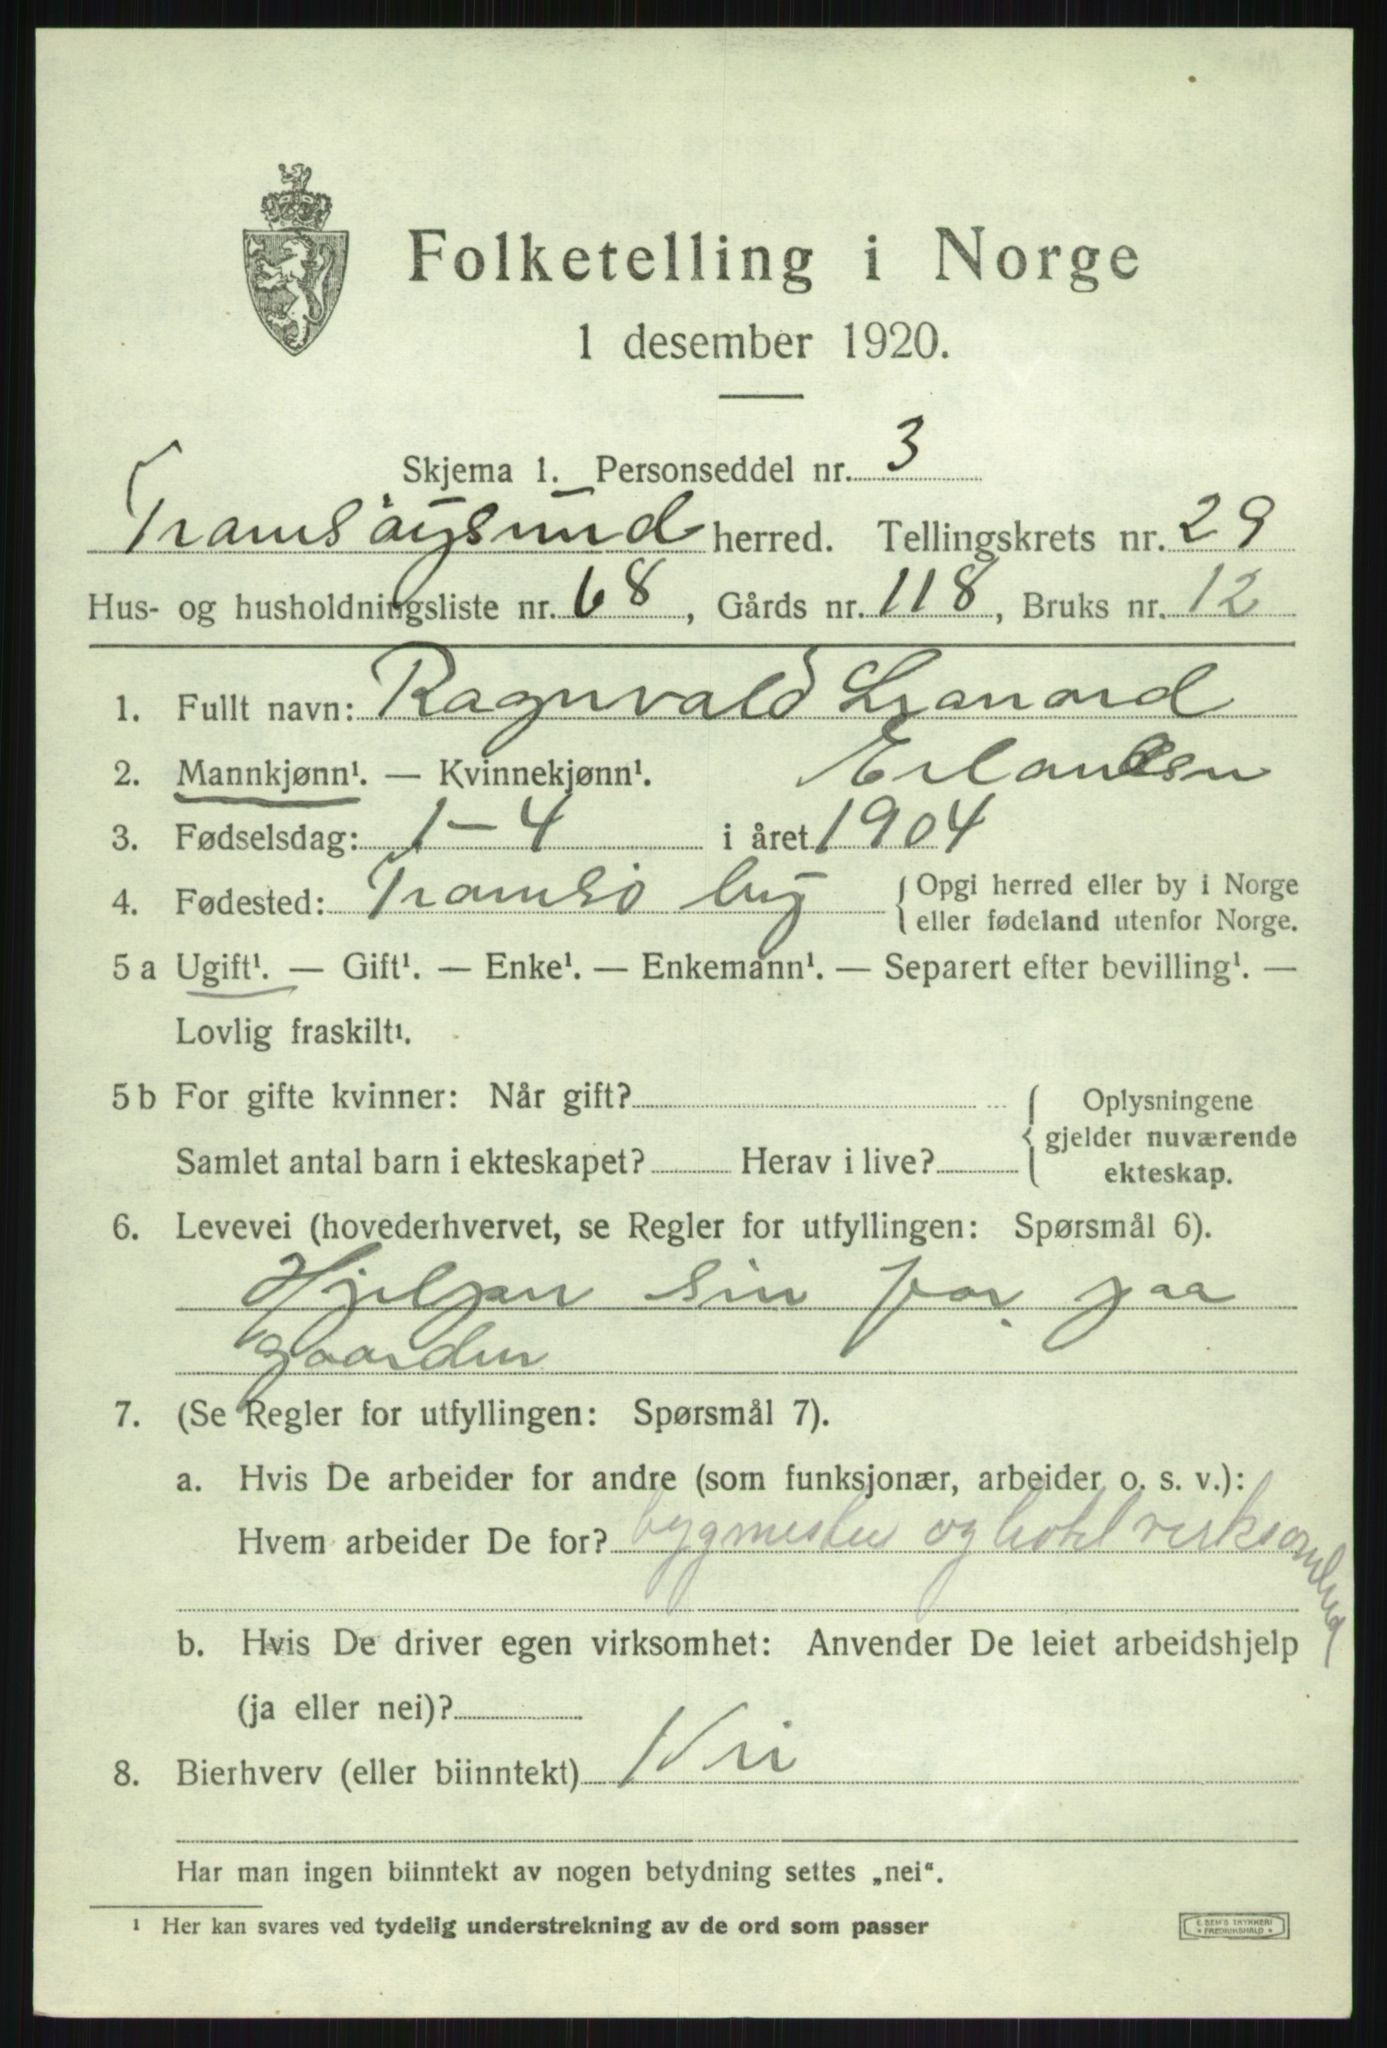 Folketelling i Norge
1 desember 1920.
Skjema 1. Personseddel nr. 3
Tromsöysund herred. Tellingskrets nr. 29
Hus- og husholdningsliste nr. 68, Gårds nr. 118, Bruks nr. 12
1. Fullt navn: Ragnvald Leonard
2. Mannkjønn¹. — Kvinnekjønn¹. Erlandsen
3. Fødselsdag: 1-4 i året 1904
4. Fødested: Tromsö by { Opgi herred eller by i Norge
eller fødeland utenfor Norge.
5 a Ugift¹. — Gift¹. — Enke¹. — Enkemann¹. — Separert efter bevilling¹. —
Lovlig fraskilt¹.
5 b For gifte kvinner: Når gift?
Oplysningene
gjelder nuværende
ekteskap.
Samlet antal barn i ekteskapet? Herav i live?
6. Levevei (hovederhvervet, se Regler for utfyllingen: Spørsmål 6).
Hjelper sin far paa
gaarden
7. (Se Regler for utfyllingen: Spørsmål 7).
a. Hvis De arbeider for andre (som funksjonær, arbeider o. s. v.):
Hvem arbeider De for? bygmester og hotel virksomhed
b. Hvis De driver egen virksomhet: Anvender De leiet arbeidshjelp
(ja eller nei)?
8. Bierhverv (eller biinntekt) Nei
Har man ingen biinntekt av nogen betydning settes „nei“.
¹ Her kan svares ved tydelig understrekning av de ord som passer
E. SEM'S TRYKKERI
FREDRIKSHALD